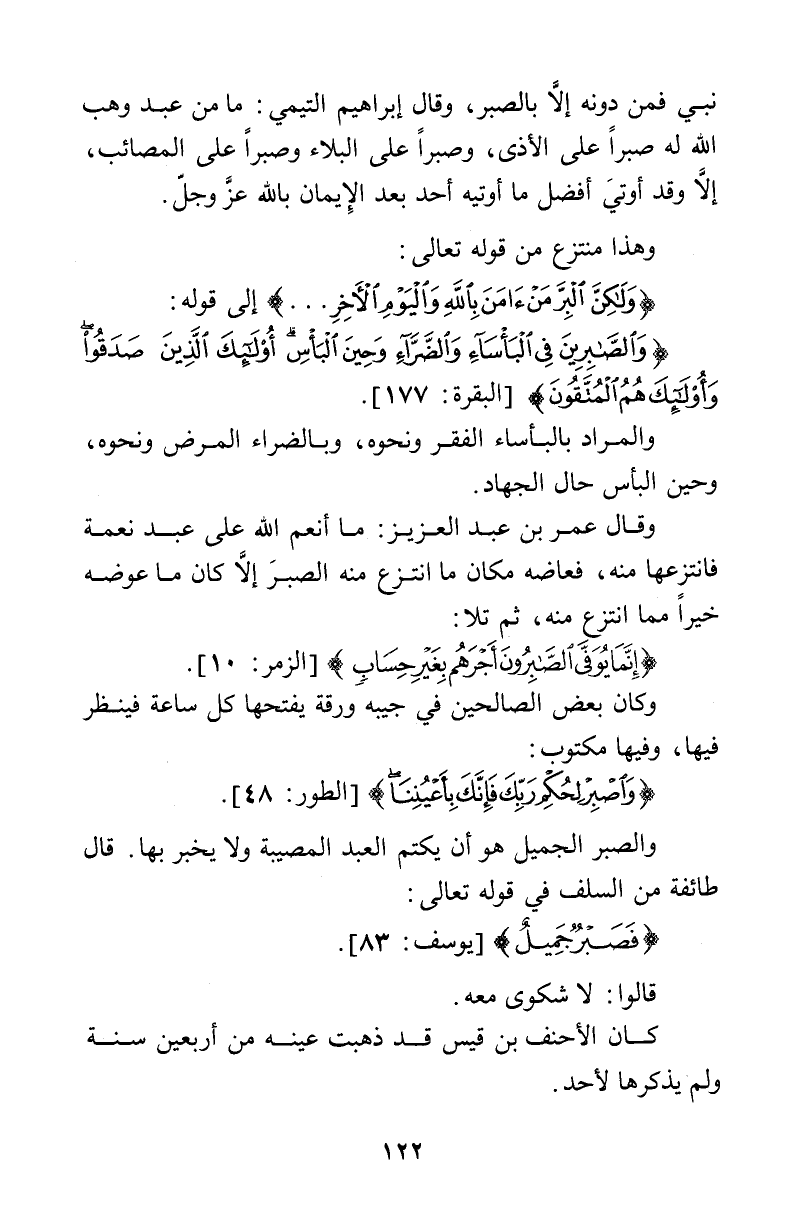 نبي فمن دونه إلَّا بالصبر، وقال إبراهيم التيمي: ما من عبد وهب
الله له صبراً على الأذى، وصبراً على البلاء وصبراً على المصائب،
إلَّا وقد أوتيَ أفضل ما أوتيه أحد بعد الإيمان بالله عزَّ وجلّ.
وهذا منتزع من قوله تعالى:
﴿وَلَٰكِنَّ ٱلْبِرَّ مَنْ ءَامَنَ بِٱللَّهِ وَٱلْيَوْمِ ٱلْأَخِرِ...﴾ إلى قوله:
﴿وَٱلصَّٰبِرِينَ فِى ٱلْبَأْسَآءِ وَٱلضَّرَّآءِ وَحِينَ ٱلْبَأْسِ ۗ أُوْلَٰٓئِكَ ٱلَّذِينَ صَدَقُوا۟ ۖ
وَأُوْلَٰٓئِكَ هُمُ ٱلْمُتَّقُونَ﴾ [البقرة: ١٧٧].
والمراد بالبأساء الفقر ونحوه، وبالضراء المرض ونحوه،
وحين البأس حال الجهاد.
وقال عمر بن عبد العزيز: ما أنعم الله على عبد نعمة
فانتزعها منه، فعاضه مكان ما انتزع منه الصبرَ إلَّا كان ما عوضه
خيراً مما انتزع منه، ثم تلا:
﴿إِنَّمَا يُوَفَّى ٱلصَّٰبِرُونَ أَجْرَهُم بِغَيْرِ حِسَابٍ﴾ [الزمر: ١٠].
وكان بعض الصالحين في جيبه ورقة يفتحها كل ساعة فينظر
فيها، وفيها مكتوب:
﴿وَٱصْبِرْ لِحُكْمِ رَبِّكَ فَإِنَّكَ بِأَعْيُنِنَا ۖ﴾ [الطور: ٤٨].
والصبر الجميل هو أن يكتم العبد المصيبة ولا يخبر بها. قال
طائفة من السلف في قوله تعالى:
﴿فَصَبْرٌ جَمِيلٌ﴾ [يوسف: ٨٣].
قالوا: لا شكوى معه.
كان الأحنف بن قيس قد ذهبت عينه من أربعين سنة
ولم يذكرها لأحد.
١٢٢